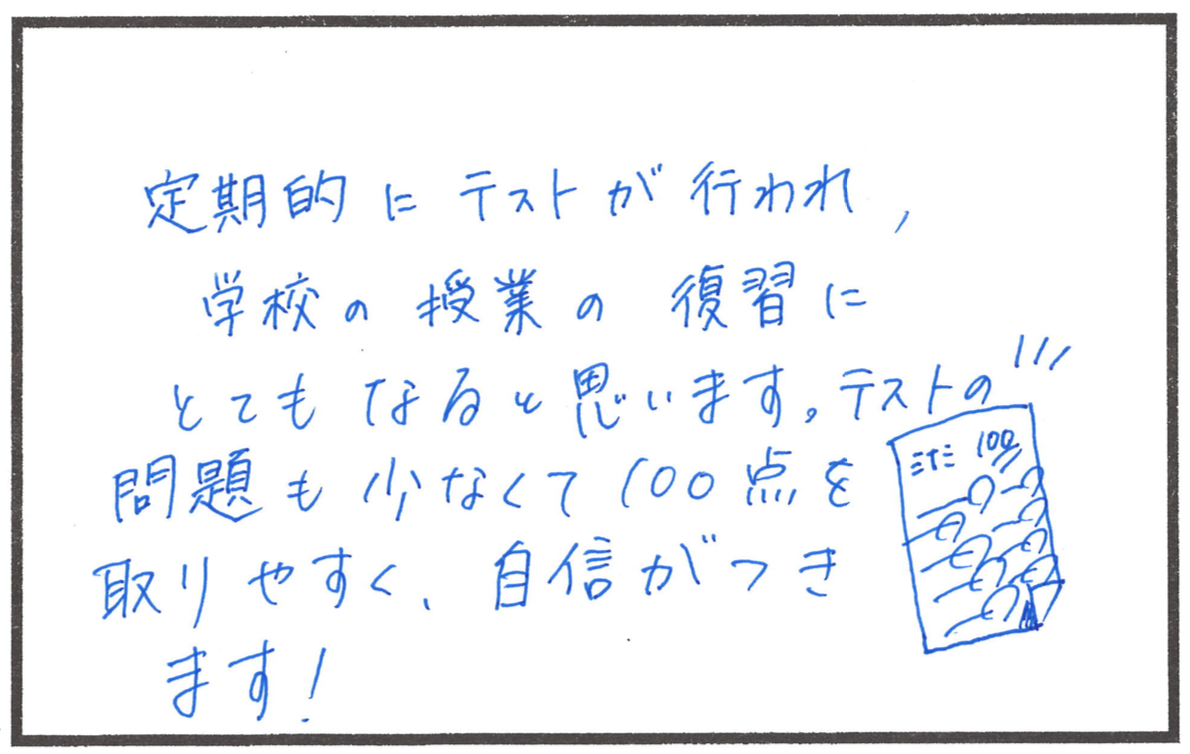 定期的にテストが行われ,
学校の授業の復習に
とてもなると思います。テストの
問題も少なくて100点を
取りやすく、自信がつき
ます!
100